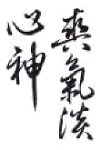 爽氣淡
心神